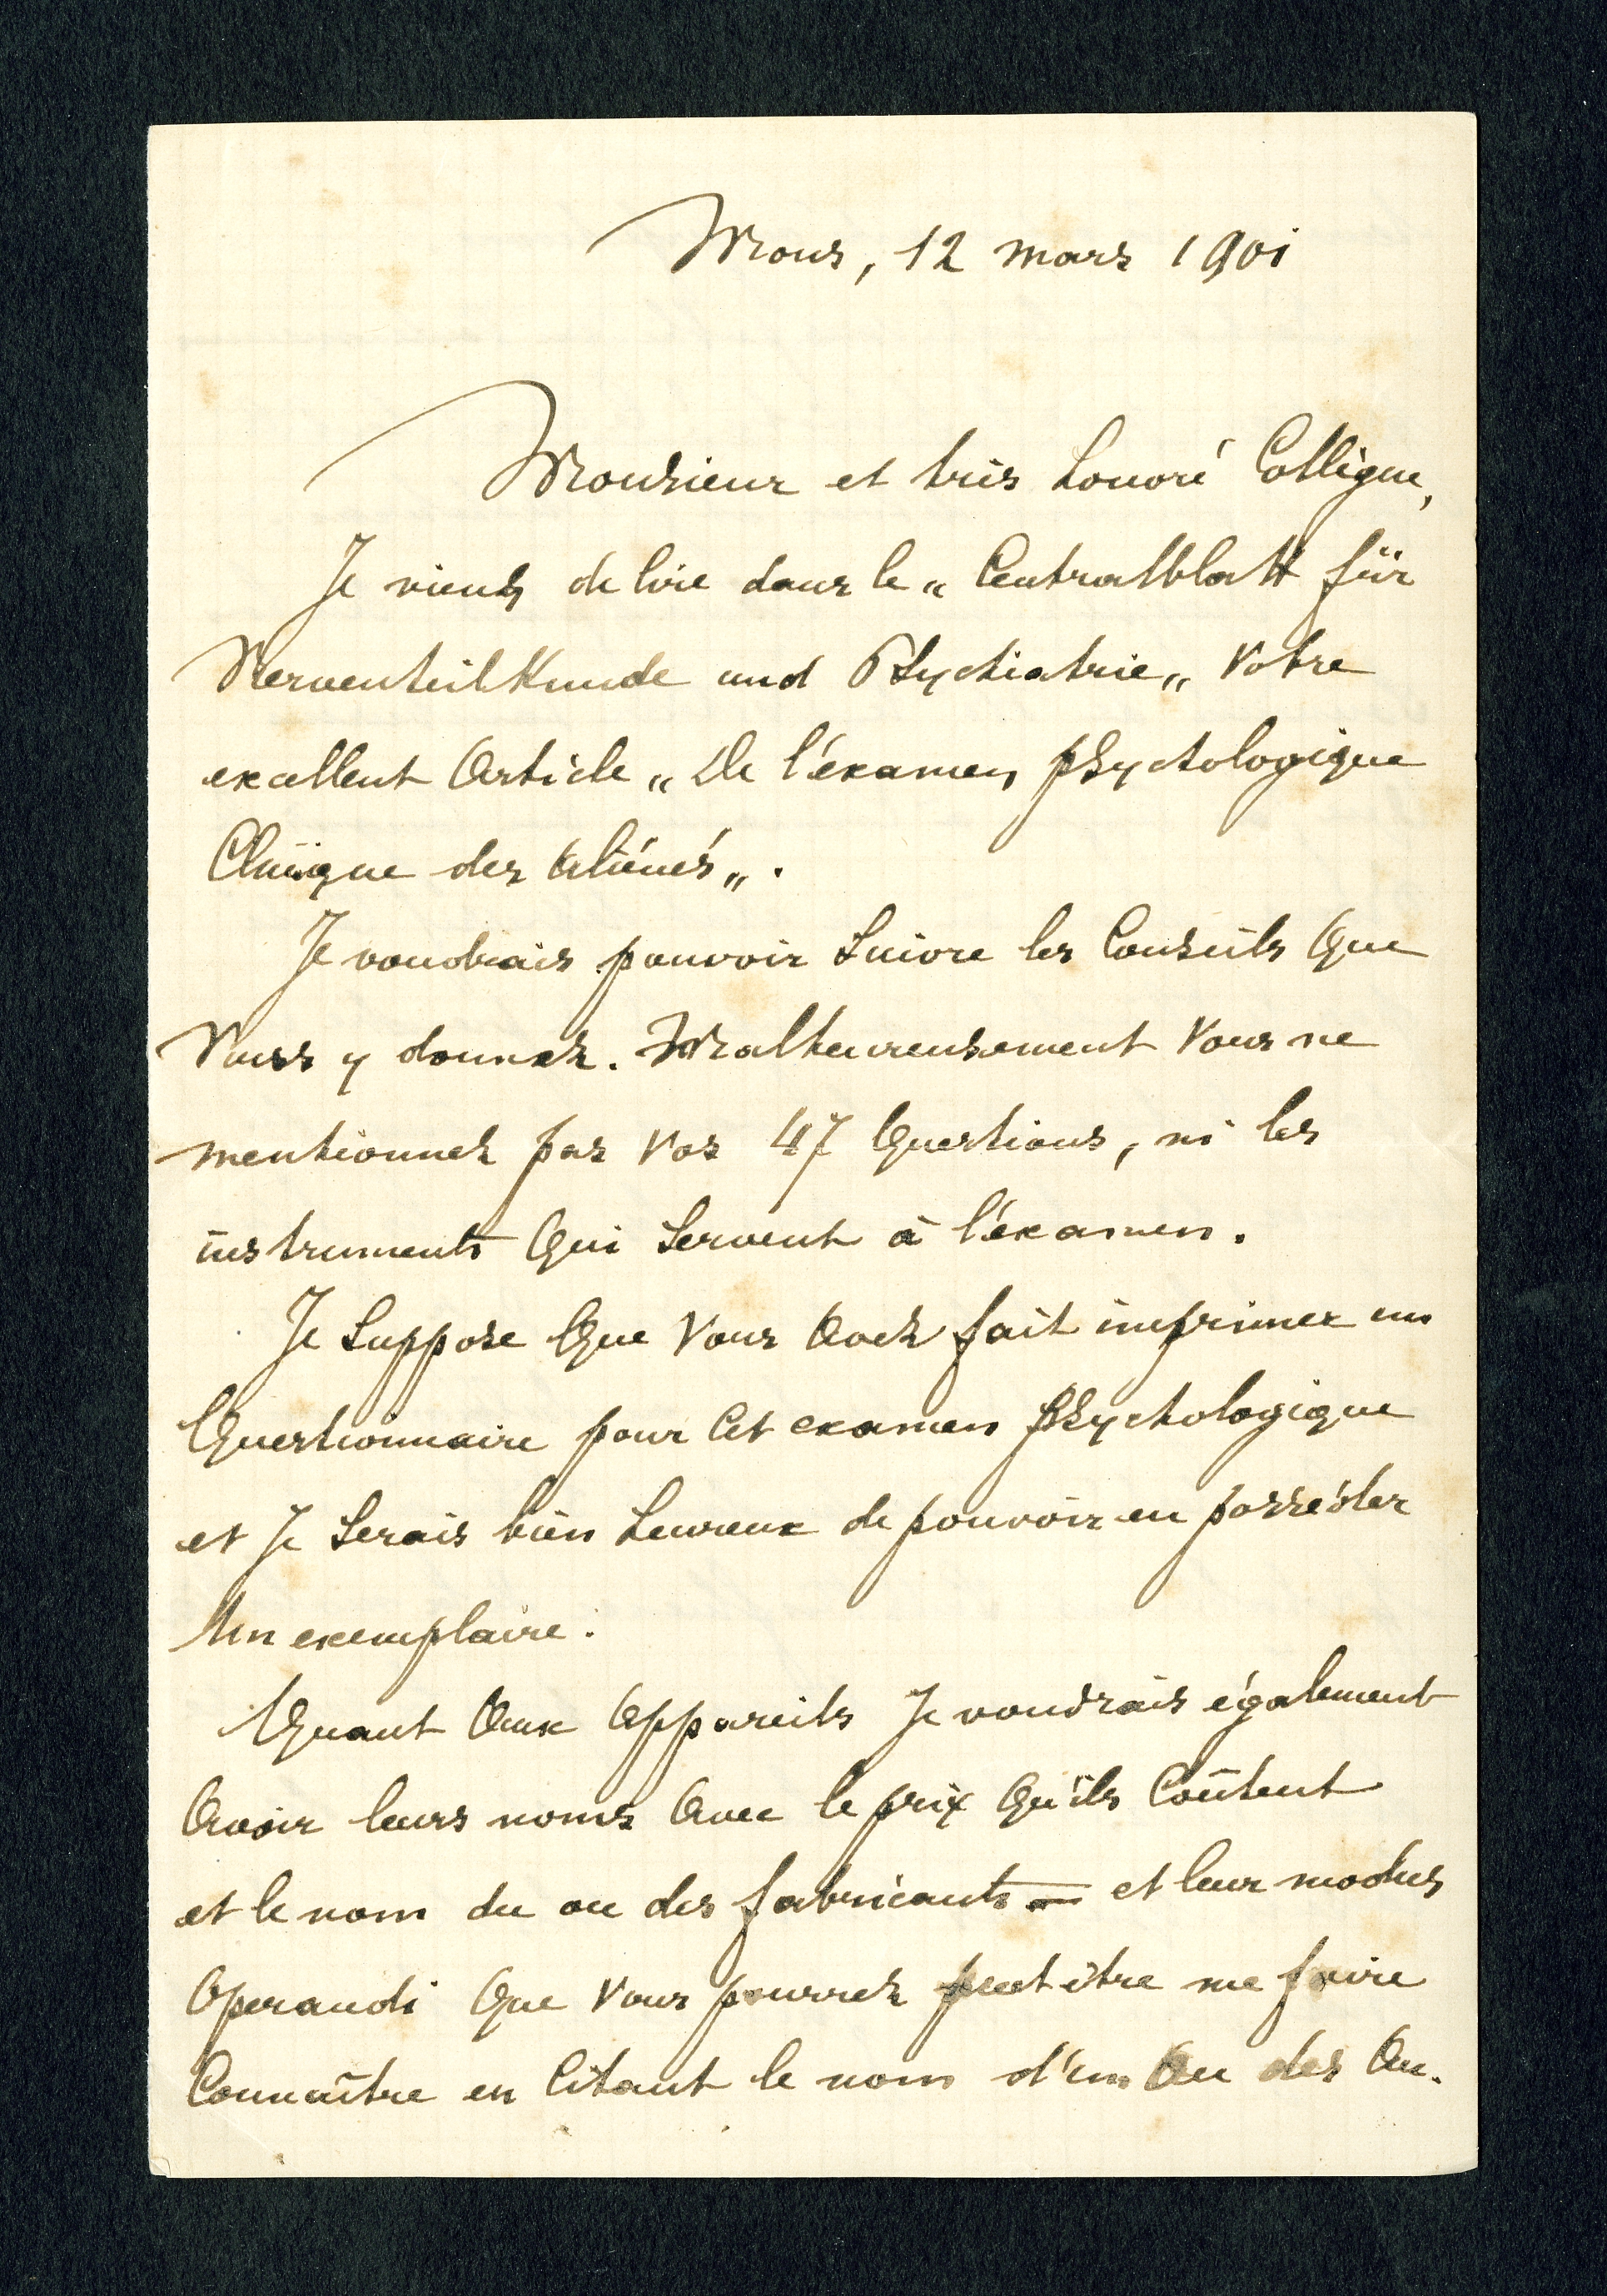 Mons, 12 mars 1901
Monsieur et très honoré Collègue,
Je viens de lire dans le „ Centralblatt für
Nervenheilkunde und Psychiatrie „ Votre
excellent Article „ De l'éxamen psychologique
Clinique des Aliénés „ .
Je voudrais pouvoir Suivre les Conseils Que
Vous y donnez. Malheureusement Vous ne
mentionnez pas Vos 47 Questions, ni les
instruments Qui Servent à l'éxamen.
Je Suppose Que Vous Avez fait imprimer un
Questionnaire pour Cet examen psychologique
et Je Serais bien heureux de pouvoir en posséder
Un exemplaire.
Quant Aux Appareils Je voudrais également
Avoir leurs noms Avec le prix Qu'ils Coûtent
et le nom du ou des fabricants — et leur modus
Operandi Que Vous pourrez peut être me faire
Connaître en Citant le nom d'un Ou des Au-